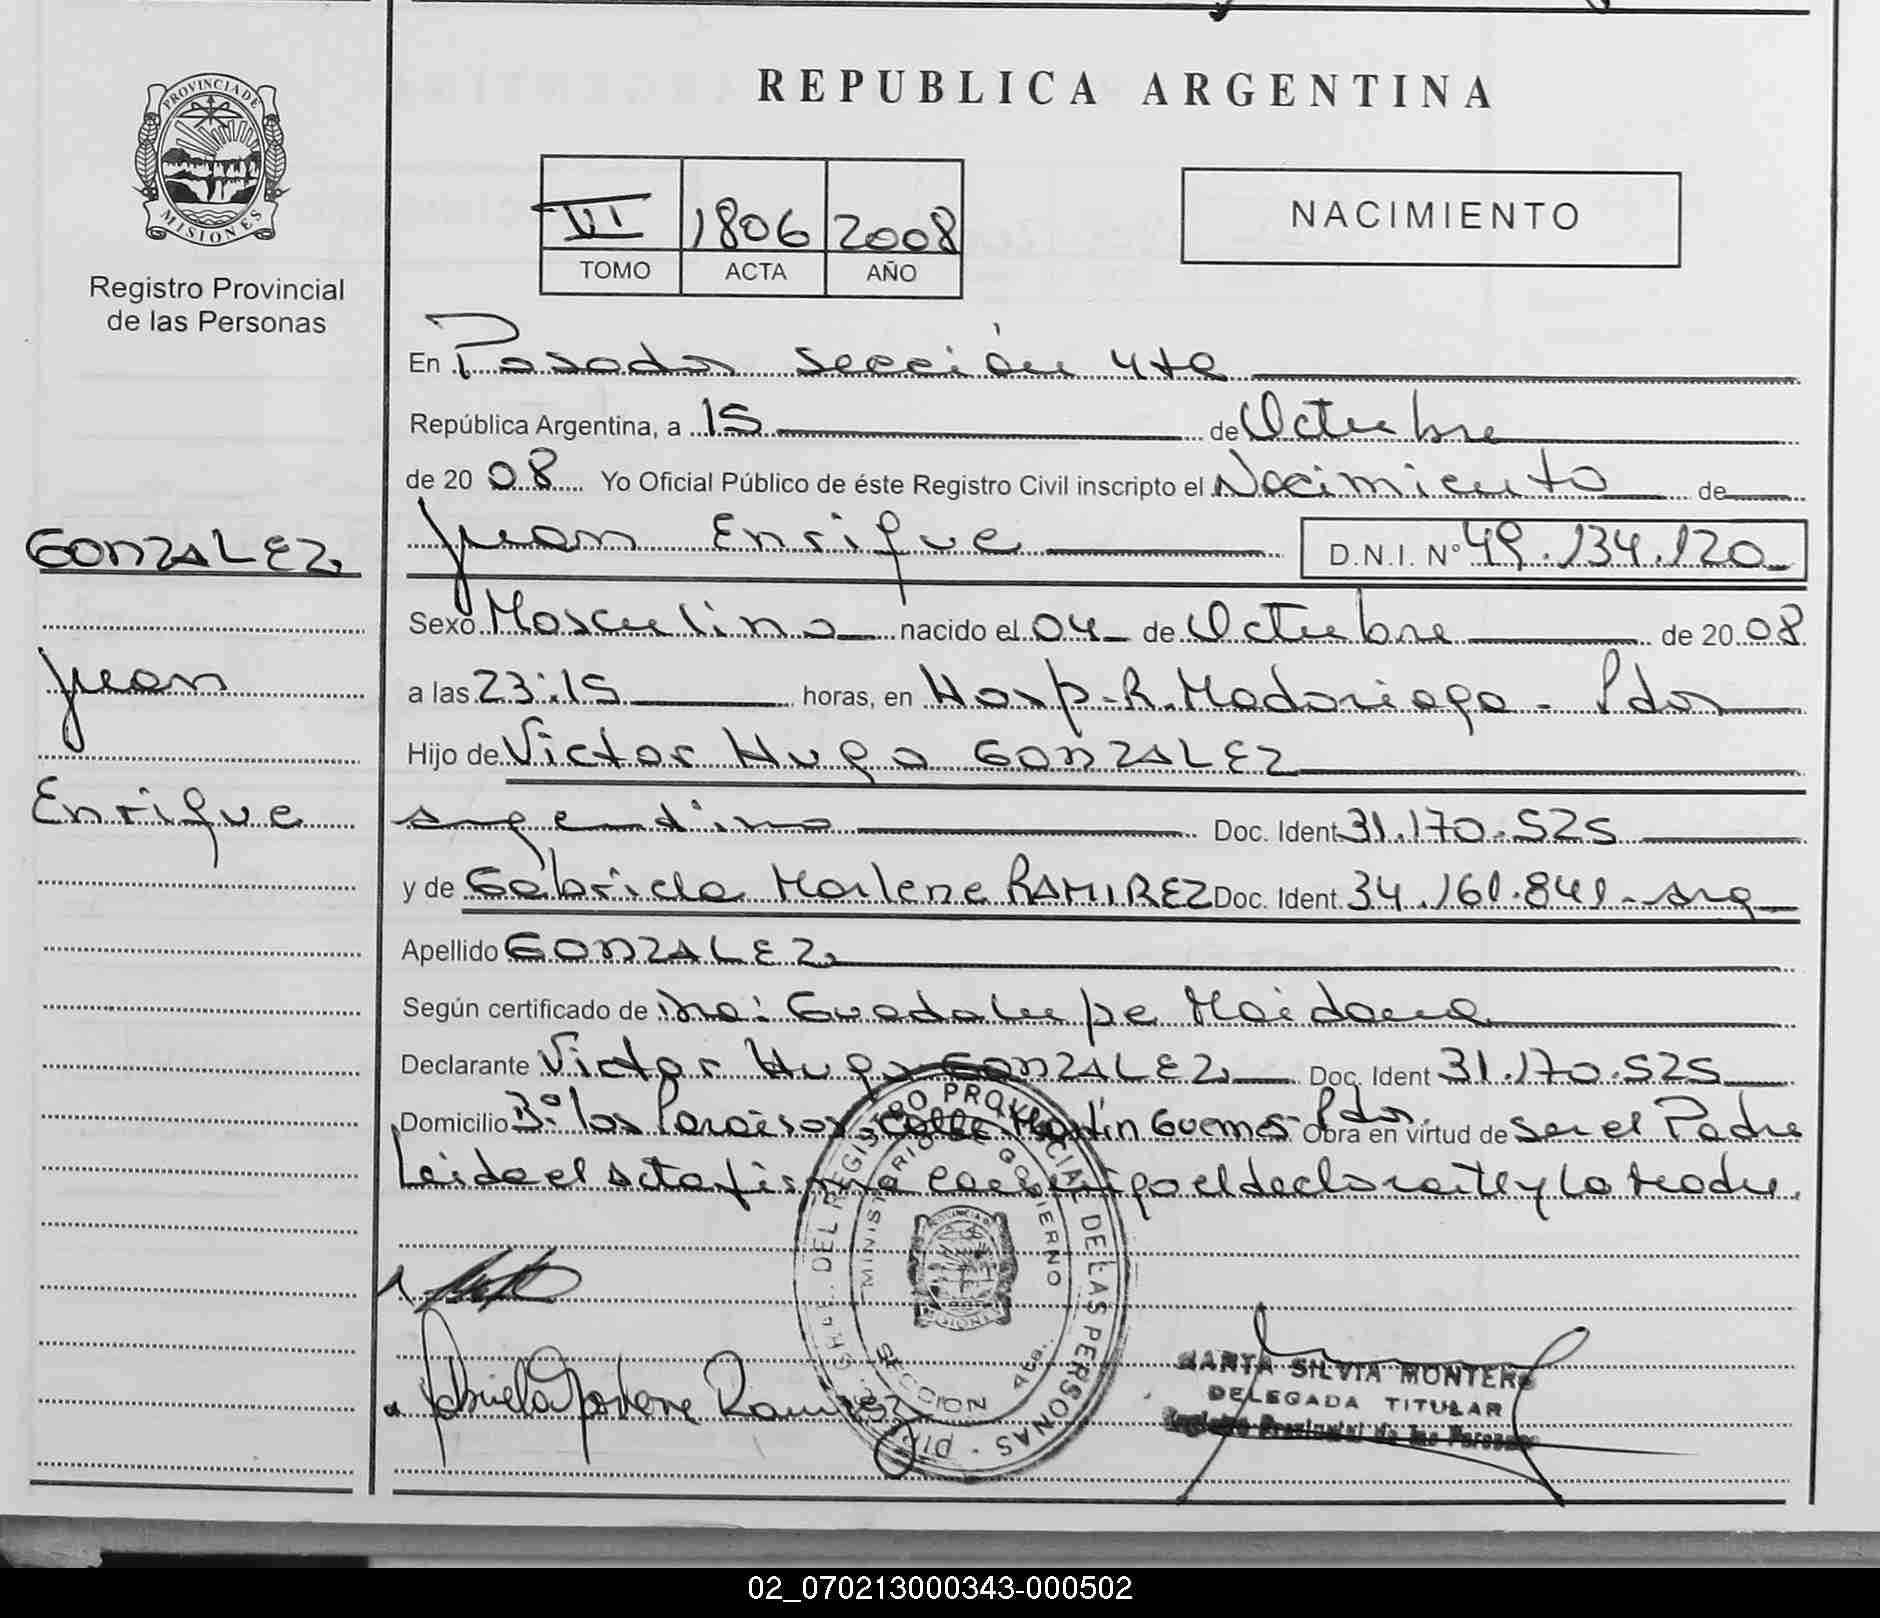 PROVINCIA DE
MISIONES
Registro Provincial
de las Personas
GONZALEZ
Juan
Enrique
REPUBLICA ARGENTINA
VI 1806 2008
TOMO ACTA AÑO
NACIMIENTO
En Posadas Sección 4ta
República Argentina, a 15 de Octubre
de 20 08 Yo Oficial Público de éste Registro Civil inscripto el Nacimiento de
Juan Enrique D.N.I. Nº 49.134.120
Sexo Masculino nacido el 04 de Octubre de 20 08
a las 23:15 horas, en Hosp. R. Madariaga - Pdas
Hijo de Victor Hugo GONZALEZ
argentino Doc. Ident 31.170.525
y de Gabriela Marlene RAMIREZ Doc. Ident. 34.161.841 - arg
Apellido GONZALEZ
Según certificado de Dra: Guadalupe Maidana
Declarante Victor Hugo GONZALEZ Doc. Ident 31.170.525
Domicilio Bº los Paraisos, calle Martín Guemes Pdas. Obra en virtud de ser el Padre
Leida el acta firma conmigo el declarante y la Madre.
DEL REGISTRO PROVINCIAL DE LAS PERSONAS
MINISTERIO GOBIERNO
PROVINCIA DE
SECCION 4ta.
Gabriela Marlene Ramirez
MARTA SILVIA MONTERO
DELEGADA TITULAR
Registro Provincial de las Personas
02_070213000343-000502